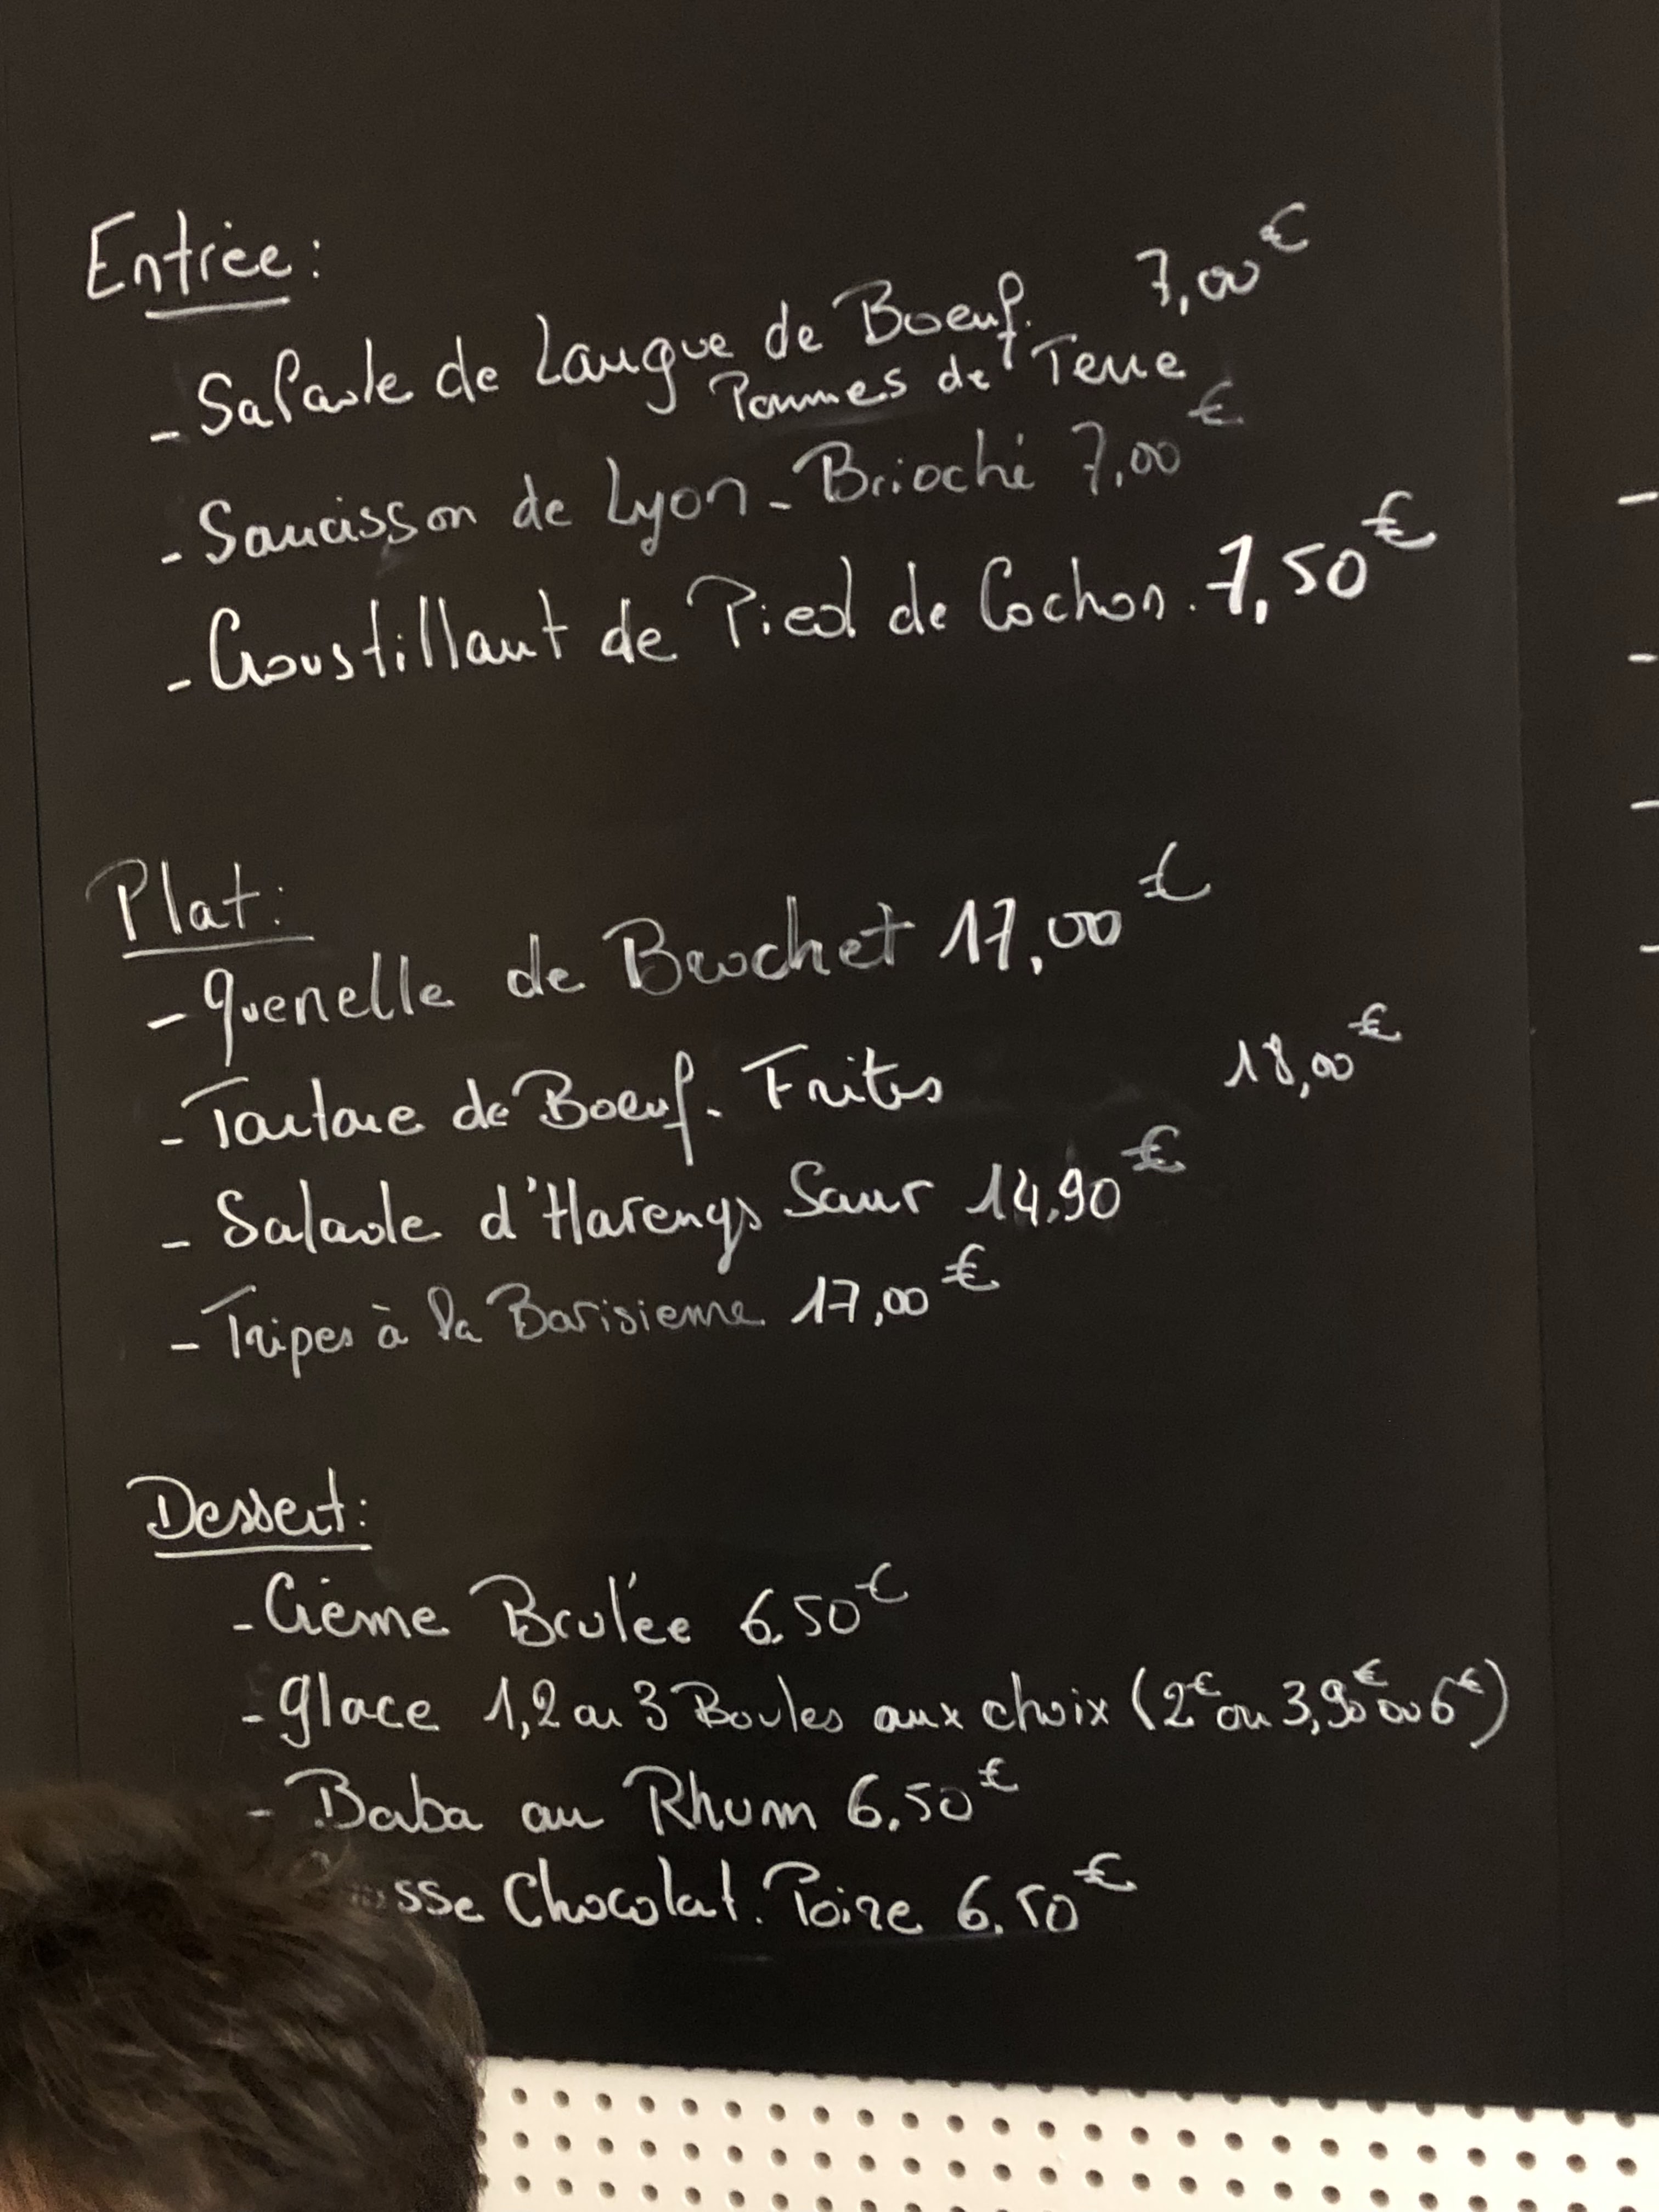 Entrée :
- Salade de Langue de Boeuf. 7,00€
Pommes de Terre
- Saucisson de Lyon - Brioché 7,00€
- Croustillant de Pied de Cochon. 7,50€
Plat :
- quenelle de Brochet 17,00€
- Tartare de Boeuf. Frites 18,00€
- Salade d'Harengs Saur 14,90€
- Tripes à la Barisienne 17,00€
Dessert :
- Crème Brulée 6.50€
- glace 1,2 ou 3 Boules aux choix (2€ ou 3,90€ ou 6€)
- Baba au Rhum 6.50€
sse Chocolat. Poire 6.50€